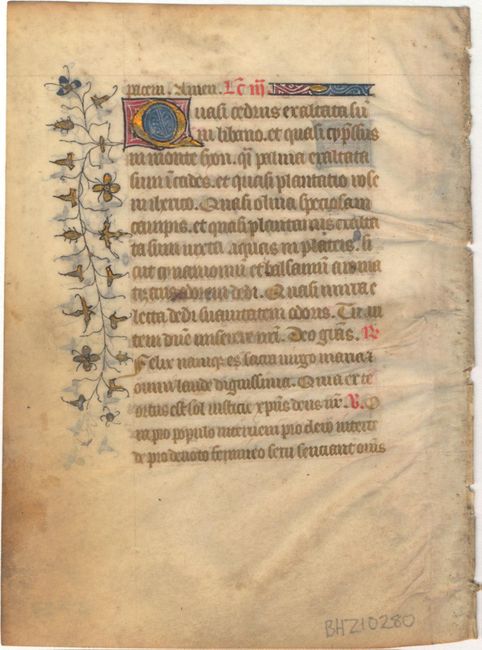 pacem. Amen. Lc iii
Quasi cedrus exaltata sū
in libano. et quasi cypssus
in monte syon. q̄i palma exaltata
sum ī cades. et quasi plantatio rose
in iherico. Quasi oliua speciosa in
campis. et quasi platanus exalta
ta sum iuxta aquas in plateis. si
cut cinamomū et balsamū aroma
tizans odorem dedi. Quasi mirra e
lecta dedi suauitatem odoris. Tu au
tem dūe miserere nr̄i. Deo grās. R
Felix namqȝ es sacra uirgo maria ⁊
omni laude dignissima. Quia ex te
ortus est sol iusticie xp̄us deus nr̄. V. O
ra pro populo interueni pro clero interce
de pro deuoto femineo sexu senciant om̄s
BHZ10280